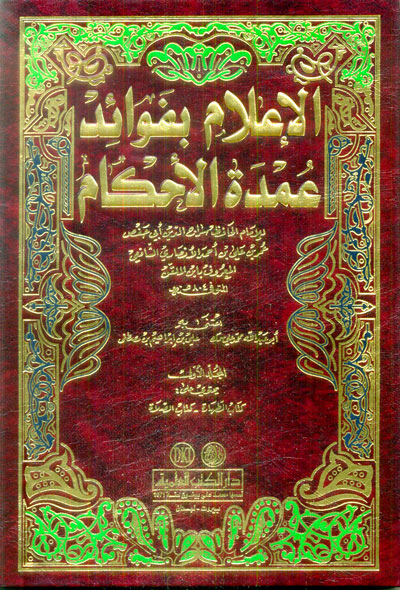 الإعلام بفوائد
عمدة الأحكام
للإمام الحافظ سراج الدين أبي حفص
عمر بن علي بن أحمد الأنصاري الشافعي
المعروف بابن الملقن
المتوفى ٨٠٤ هـ
اعتنى به
المجلد الأول
يحتوي على:
كتاب الطهارة - كتاب الصلاة
DKi
دار الكتب العلمية
بيروت - لبنان